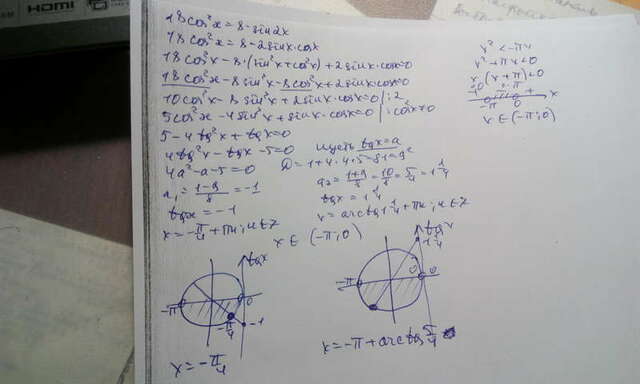 HDMI
18cos²x=8-sin2x
18cos²x=8-2sinx·cosx
18cos²x-8·(sin²x+cos²x)+2sinx·cosx=0
18cos²x-8sin²x-8cos²x+2sinx·cosx=0
10cos²x-8sin²x+2sinx·cosx=0 |:2
5cos²x-4sin²x+sinx·cosx=0 |:cos²x≠0
5-4tg²x+tgx=0
4tg²x-tgx-5=0 пусть tgx=a
4a²-a-5=0 D=1+4·4·5=81=9²
a₁=(1-9)/8=-1 a₂=(1+9)/8=10/8=5/4=1 1/4
tgx=-1 tgx=1 1/4
x=-π/4+πn; n∈Z x=arctg1 1/4+πn; n∈Z
x²<-πx
x²+πx<0
x(x+π)<0
-π 0 x
x∈(-π;0)
x∈(-π;0)
tgx
-π 0
-π/4 -1
x=-π/4
tgx
1 1/4
-π 0 0
x=-π+arctg5/4